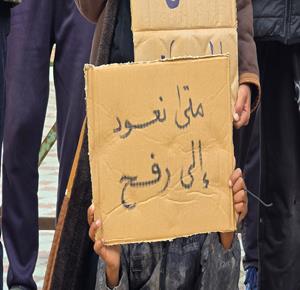 متى نعود
إلى رفح